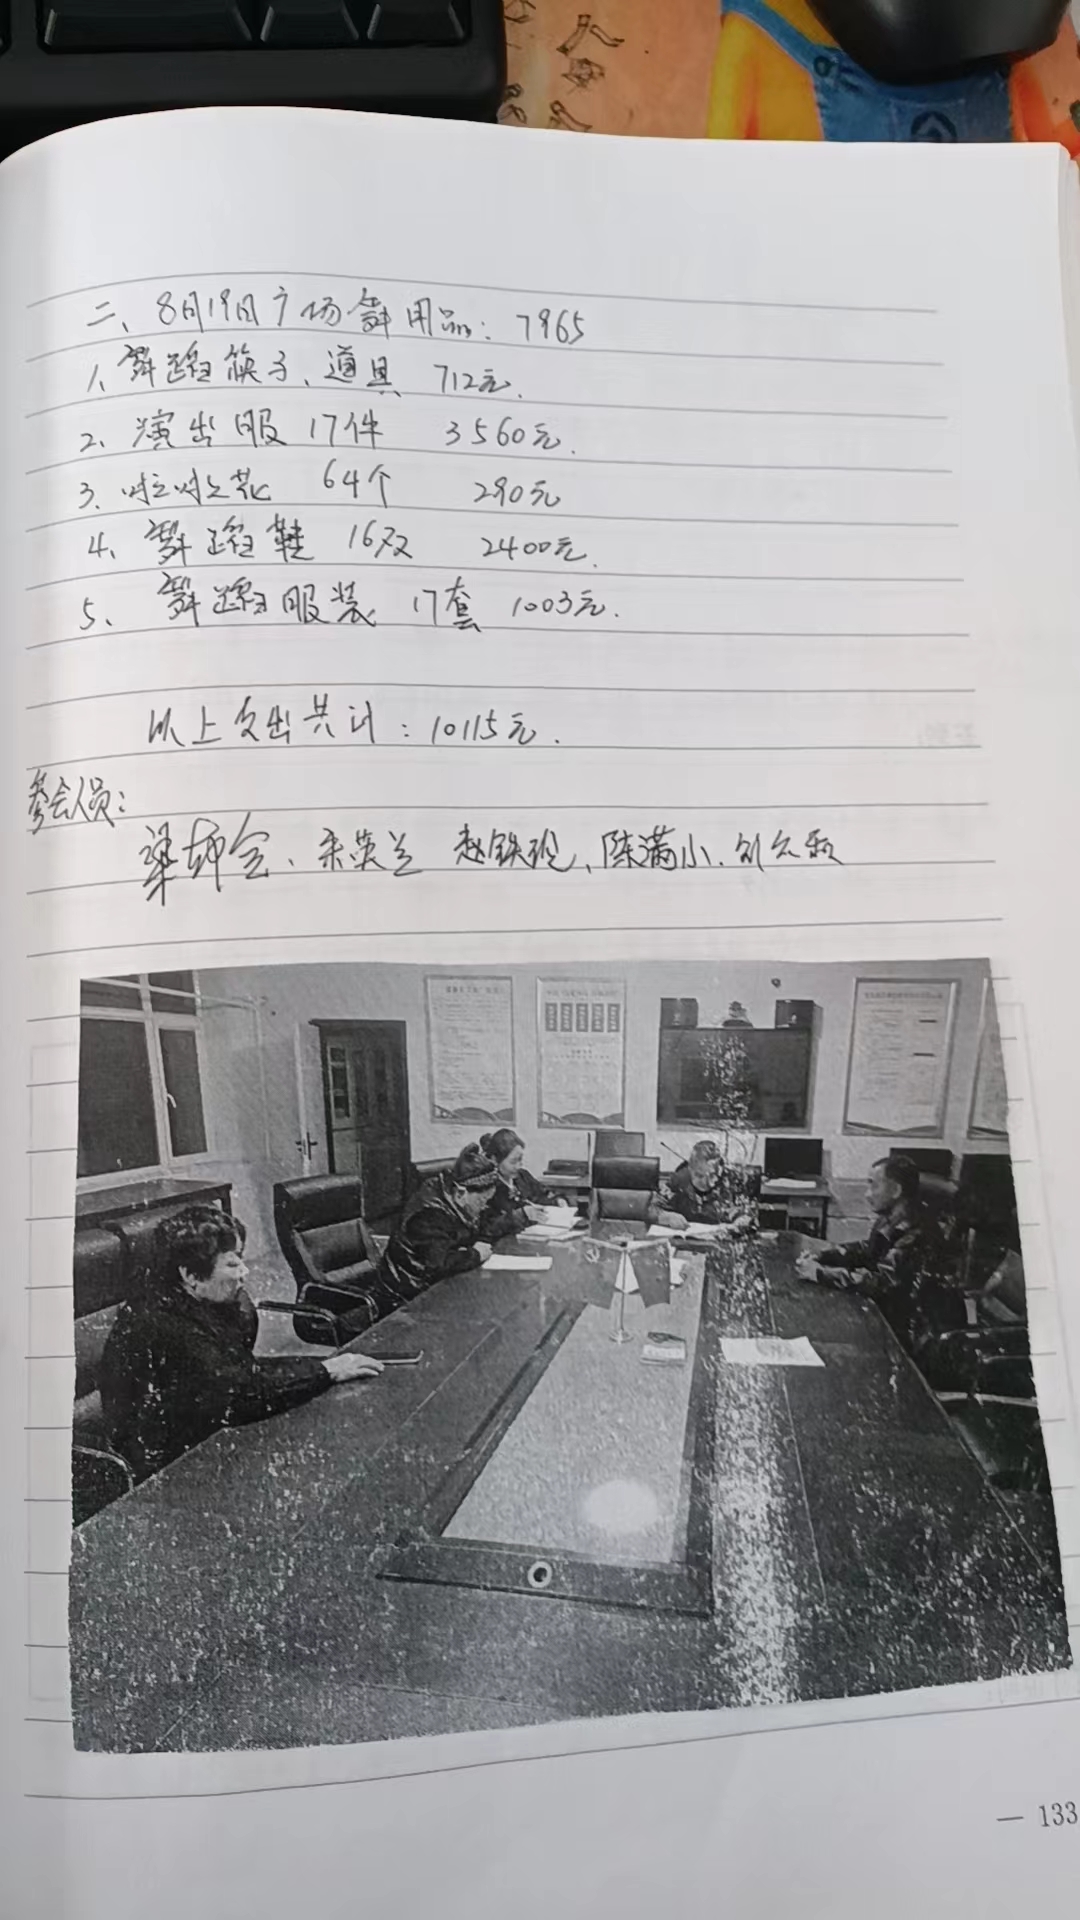 二、8月19日广场舞用品：7965
1、舞蹈筷子、道具 712元.
2、演出服 17件 3560元.
3、啦啦花 64个 290元
4、舞蹈鞋 16双 2400元.
5、舞蹈服装 17套 1003元.
以上支出共计：10115元.
参会人员：
会、英兰 赵铁 、陈满小.
— 133